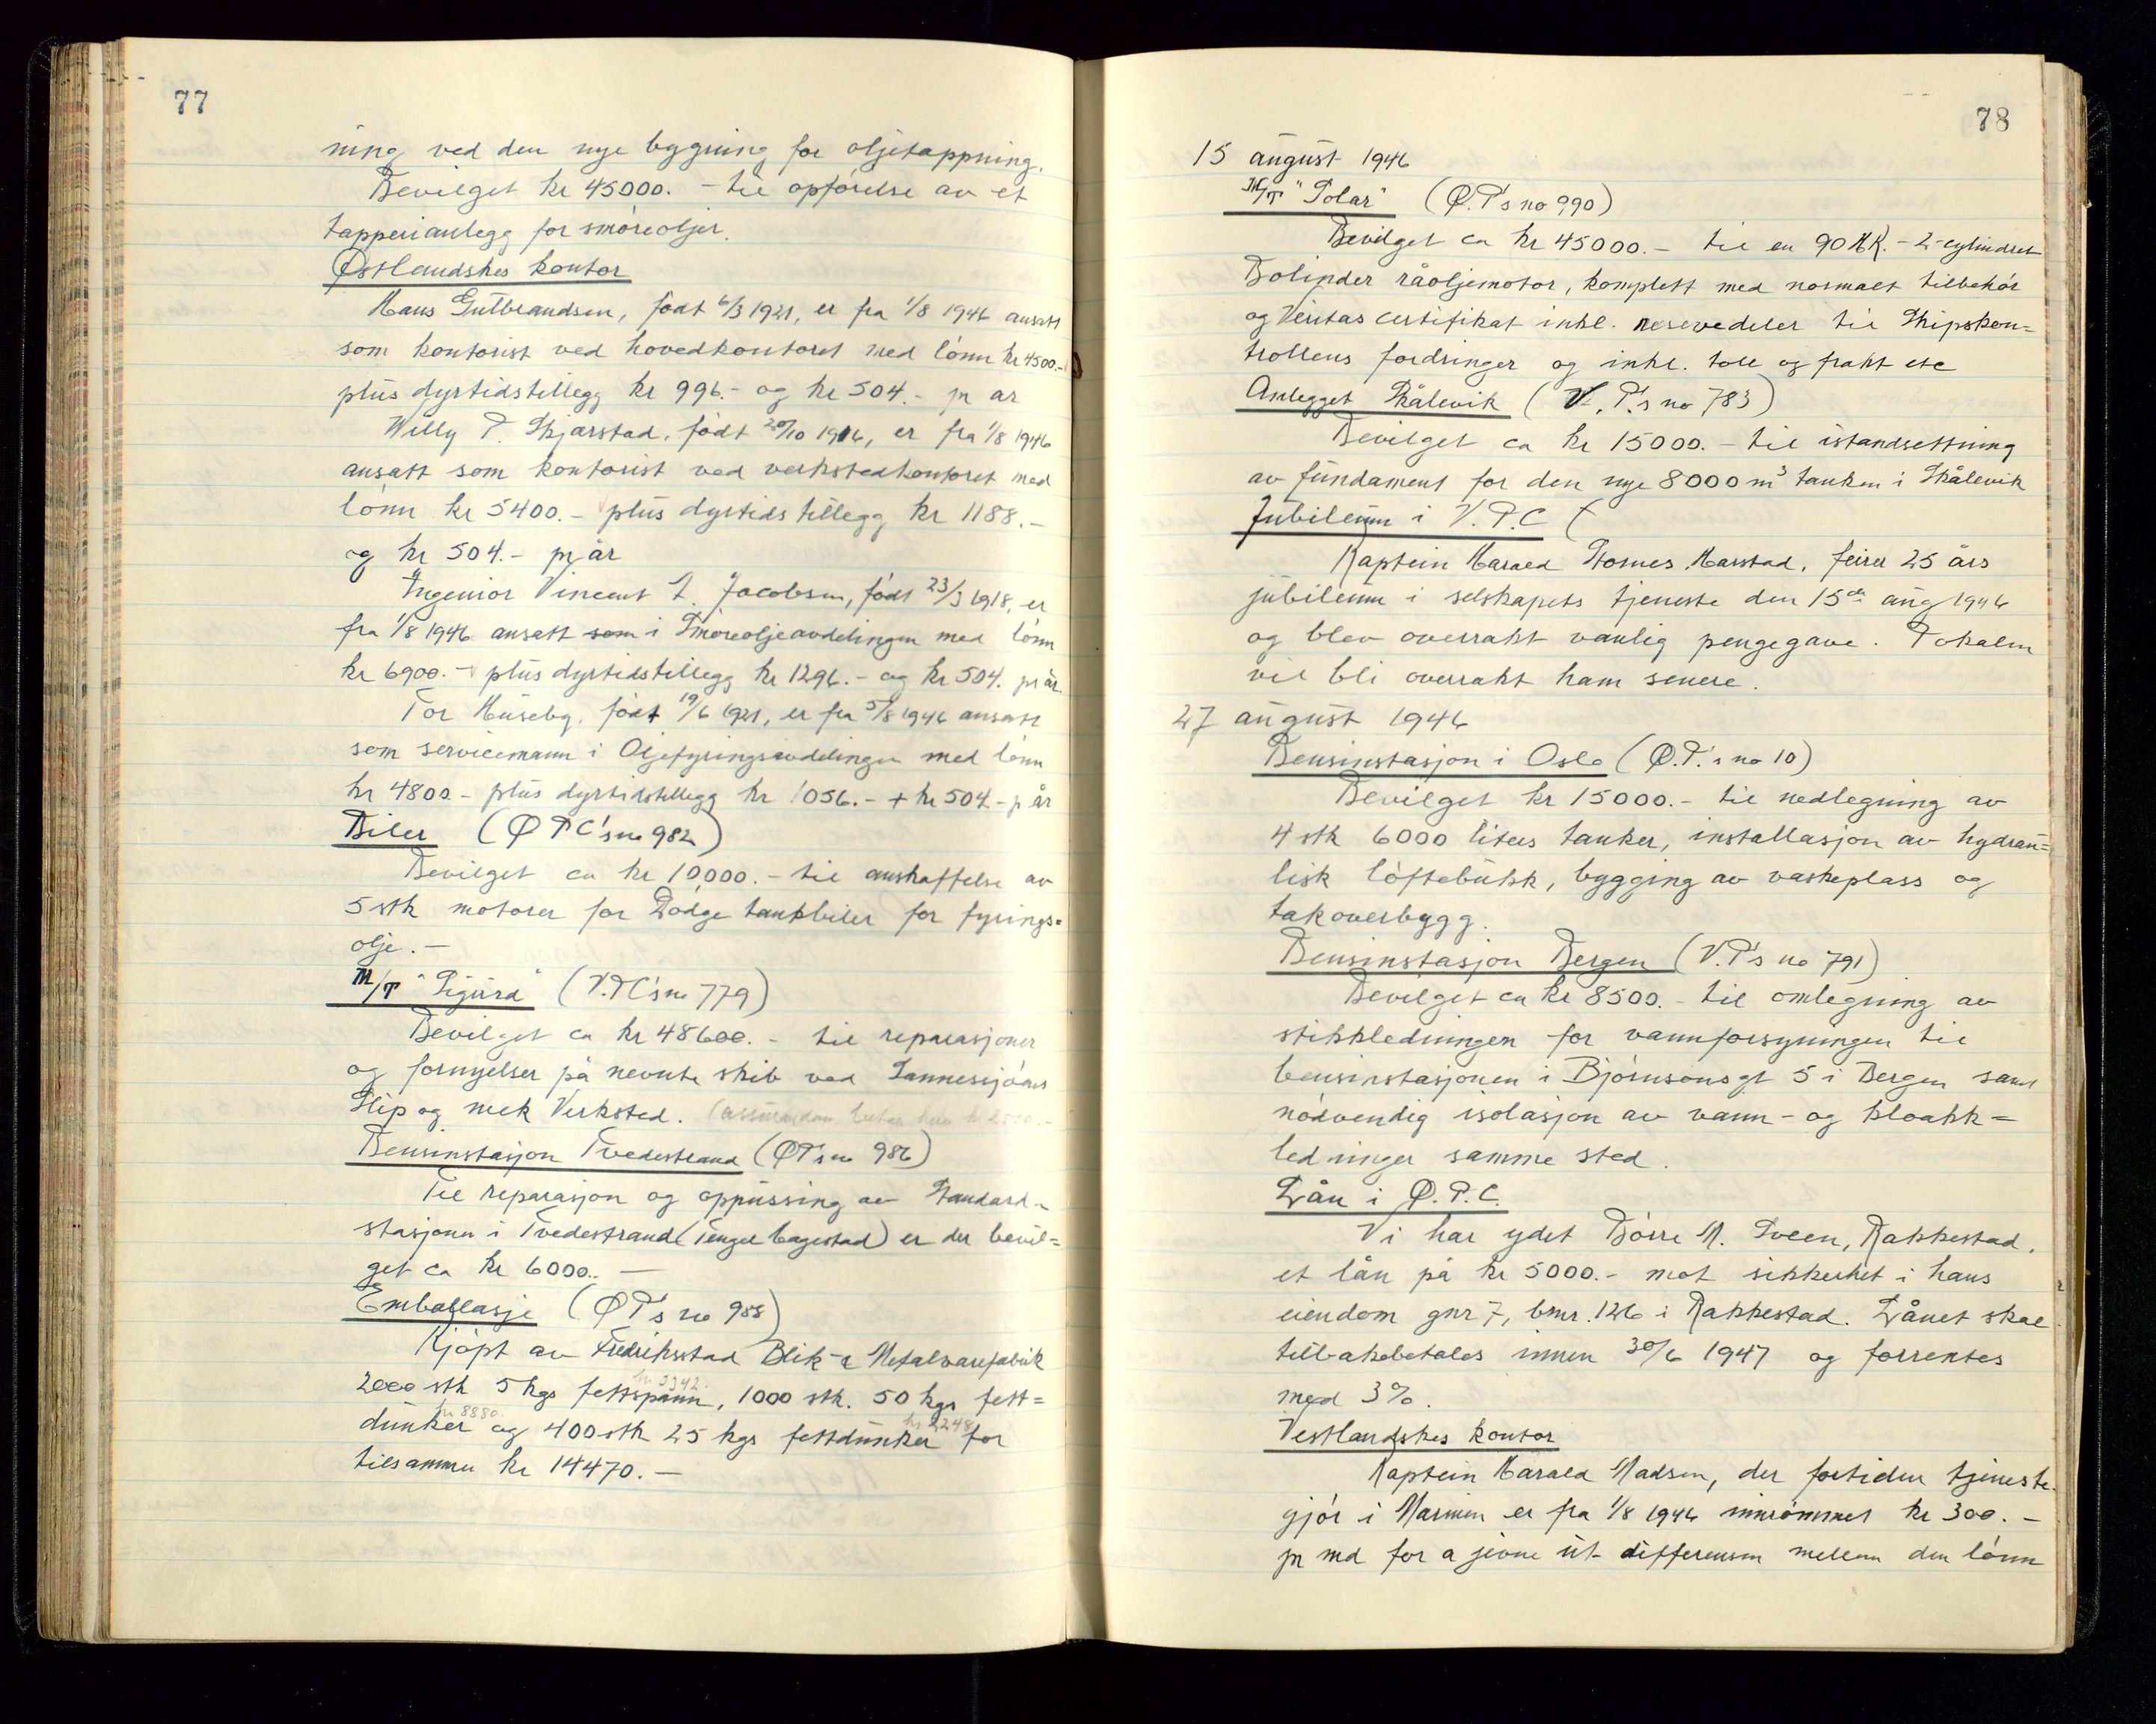 77
ning ved den nye bygning for oljetappning.
Bevilget kr 45000.- til opførelse av et
tapperianlegg for smøreoljer.
Østlandskes kontor
Hans Gulbrandsen, født 6/3 1921, er fra 1/8 1946 ansatt
som kontorist ved hovedkontoret med lønn kr 4500.-
plus dyrtidstillegg kr 996.- og kr 504.- pr år
Willy P. Skjarstad, født 20/10 1916, er fra 1/8 1946
ansatt som kontorist ved verkstedkontoret med
lønn kr 5400.- plus dyrtidstillegg kr 1188.-
og kr 504.- pr år
Ingeniør Vincent L. Jacobsen, født 23/3 1918, er
fra 1/8 1946 ansatt som i Smøreoljeavdelingen med lønn
kr 6900.- plus dyrtidstillegg kr 1296.- og kr 504. pr år.
Tor Huseby, født 19/6 1921, er fra 5/8 1946 ansatt
som servicemann i Oljefyringsavdelingen med lønn
kr 4800.- plus dyrtidstillegg kr 1056.- + kr 504.- pr år
Biler (ØPC's no 982)
Bevilget ca kr 10000.- til anskaffelse av
5 stk motorer for Dodge tankbiler for fyrings=
olje.-
M/T "Sigurd" (V.PC's no 779)
Bevilget ca kr 48600.- til reparasjoner
og fornyelser på nevnte skib ved Sannesjøens
Slip og mek Verksted.
Bensinstasjon Tvedestrand (ØP's no 986)
Til reparasjon og oppussing av Standard-
stasjonen i Tvedestrand (Tengel Cagestad) er der bevil=
get ca kr 6000.-
Emballasje (ØP's no 988)
Kjøpt av Fredriksstad Blik- & Metalvarefabrik
kr 3342.
2000 stk 5 kgs fettspann, 1000 stk. 50 kgs fett=
kr 8880. kr 2248
dunker og 400 stk 25 kgs fettdunker for
tilsammen kr 14470.-
78
15 august 1946
M/T "Polar" (Ø.P's no 990)
Bevilget ca kr 45000.- til en 90 HK.- 2-cylindret
Bolinder råoljemotor, komplett med normalt tilbehør
og Veritas certifikat inkl. resevedeler til Skipskon=
trollens fordringer og inkl. toll og frakt etc
Anlegget Skålevik (V.P.'s no 783)
Bevilget ca kr 15000.- til istandsettning
av fundament for den nye 8000 m³ tanken i Skålevik
Jubileum i V.P.C (
Kaptein Harald Stornes Harstad, feirer 25 års
jubileum i selskapets tjeneste den 15de aug 1946
og blev overrakt vanlig pengegave. Pokalen
vil bli overrakt ham senere.
27 august 1946
Bensinstasjon i Oslo (Ø.P.'s no 10)
Bevilget kr 15000.- til nedlegning av
4 stk 6000 liters tanker, installasjon av hydrau=
lisk løftebukk, bygging av vaskeplass og
takoverbygg.
Bensinstasjon Bergen (V.P's no 791)
Bevilget ca kr 8500.- til omlegning av
stikkledningen for vannforsyningen til
bensinstasjonen i Bjørnsonsgt 5 i Bergen samt
nødvendig isolasjon av vann- og kloakk=
ledninger samme sted.
Lån i Ø.P.C.
Vi har ydet Børre M. Sveen, Rakkestad,
et lån på kr 5000.- mot sikkerhet i hans
eiendom gnr 7, bnr. 126 i Rakkestad. Lånet skal
tilbakebetales innen 30/6 1947 og forrentes
med 3%.
Vestlandskes kontor
Kaptein Harald Madsen, der fortiden tjeneste-
gjør i Marinen er fra 1/8 1946 innrømmet kr 300.-
pr md for a jevne ut differensen mellem den lønn